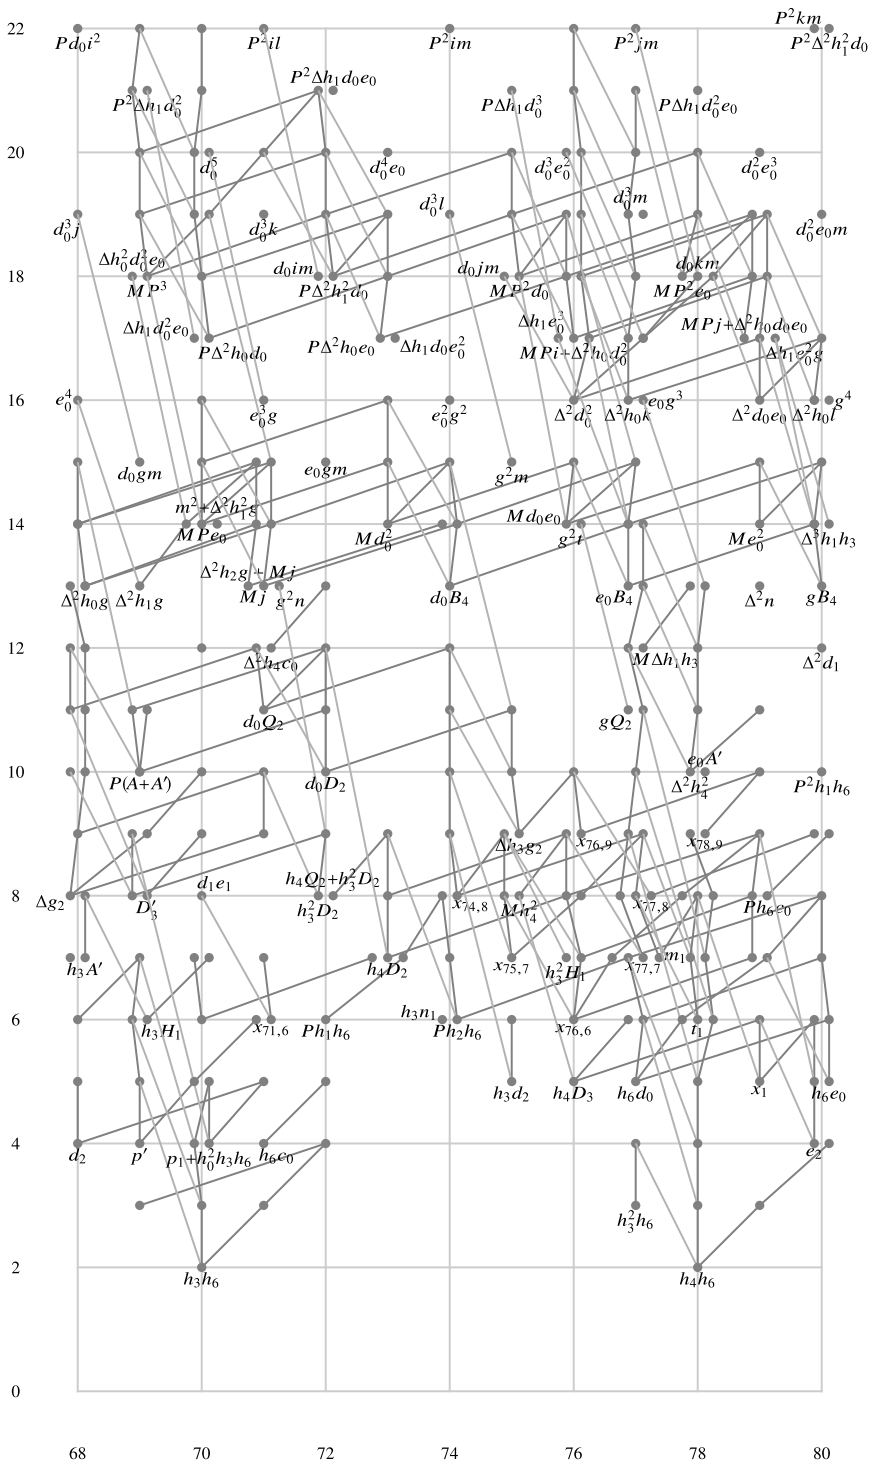 P²km
22
Pd₀i² P²il P²im P²jm P²Δ²h₁²d₀
P²Δh₁d₀e₀
P²Δh₁d₀² PΔh₁d₀³ PΔh₁d₀²e₀
20
d₀⁵ d₀⁴e₀ d₀³e₀² d₀²e₀³
d₀³l d₀³m
d₀³j d₀³k d₀²e₀m
Δh₀²d₀²e₀ d₀im d₀jm d₀km
18
MP³ PΔ²h₁²d₀ MP²d₀ MP²e₀
Δh₁d₀²e₀ Δh₁e₀³ MPj+Δ²h₀d₀e₀
PΔ²h₀d₀ PΔ²h₀e₀ Δh₁d₀e₀² MPi+Δ²h₀d₀² Δh₁e₀²g
16
e₀⁴ e₀³g e₀²g² Δ²d₀² Δ²h₀k e₀g³ Δ²d₀e₀ Δ²h₀l g⁴
d₀gm e₀gm g²m
m²+Δ²h₁²g Md₀e₀
14
MPe₀ Md₀² g²t Me₀² Δ³h₁h₃
Δ²h₂g+Mj
Δ²h₀g Δ²h₁g Mj g²n d₀B₄ e₀B₄ Δ²n gB₄
12
Δ²h₄c₀ MΔh₁h₃ Δ²d₁
d₀Q₂ gQ₂
e₀A′
10
P(A+A′) d₀D₂ Δ²h₄² P²h₁h₆
Δh₃g₂ x₇₆,₉ x₇₈,₉
h₄Q₂+h₃²D₂
d₁e₁
8
Δg₂ D₃′ h₃²D₂ x₇₄,₈ Mh₄² x₇₇,₈ Ph₆e₀
h₃A′ h₄D₂ x₇₅,₇ h₃²H₁ x₇₇,₇ m₁
h₃n₁
6
h₃H₁ x₇₁,₆ Ph₁h₆ Ph₂h₆ x₇₆,₆ t₁
h₃d₂ h₄D₃ h₆d₀ x₁ h₆e₀
4
d₂ p′ p₁+h₀²h₃h₆ h₆c₀ e₂
h₃²h₆
2
h₃h₆ h₄h₆
0
68 70 72 74 76 78 80